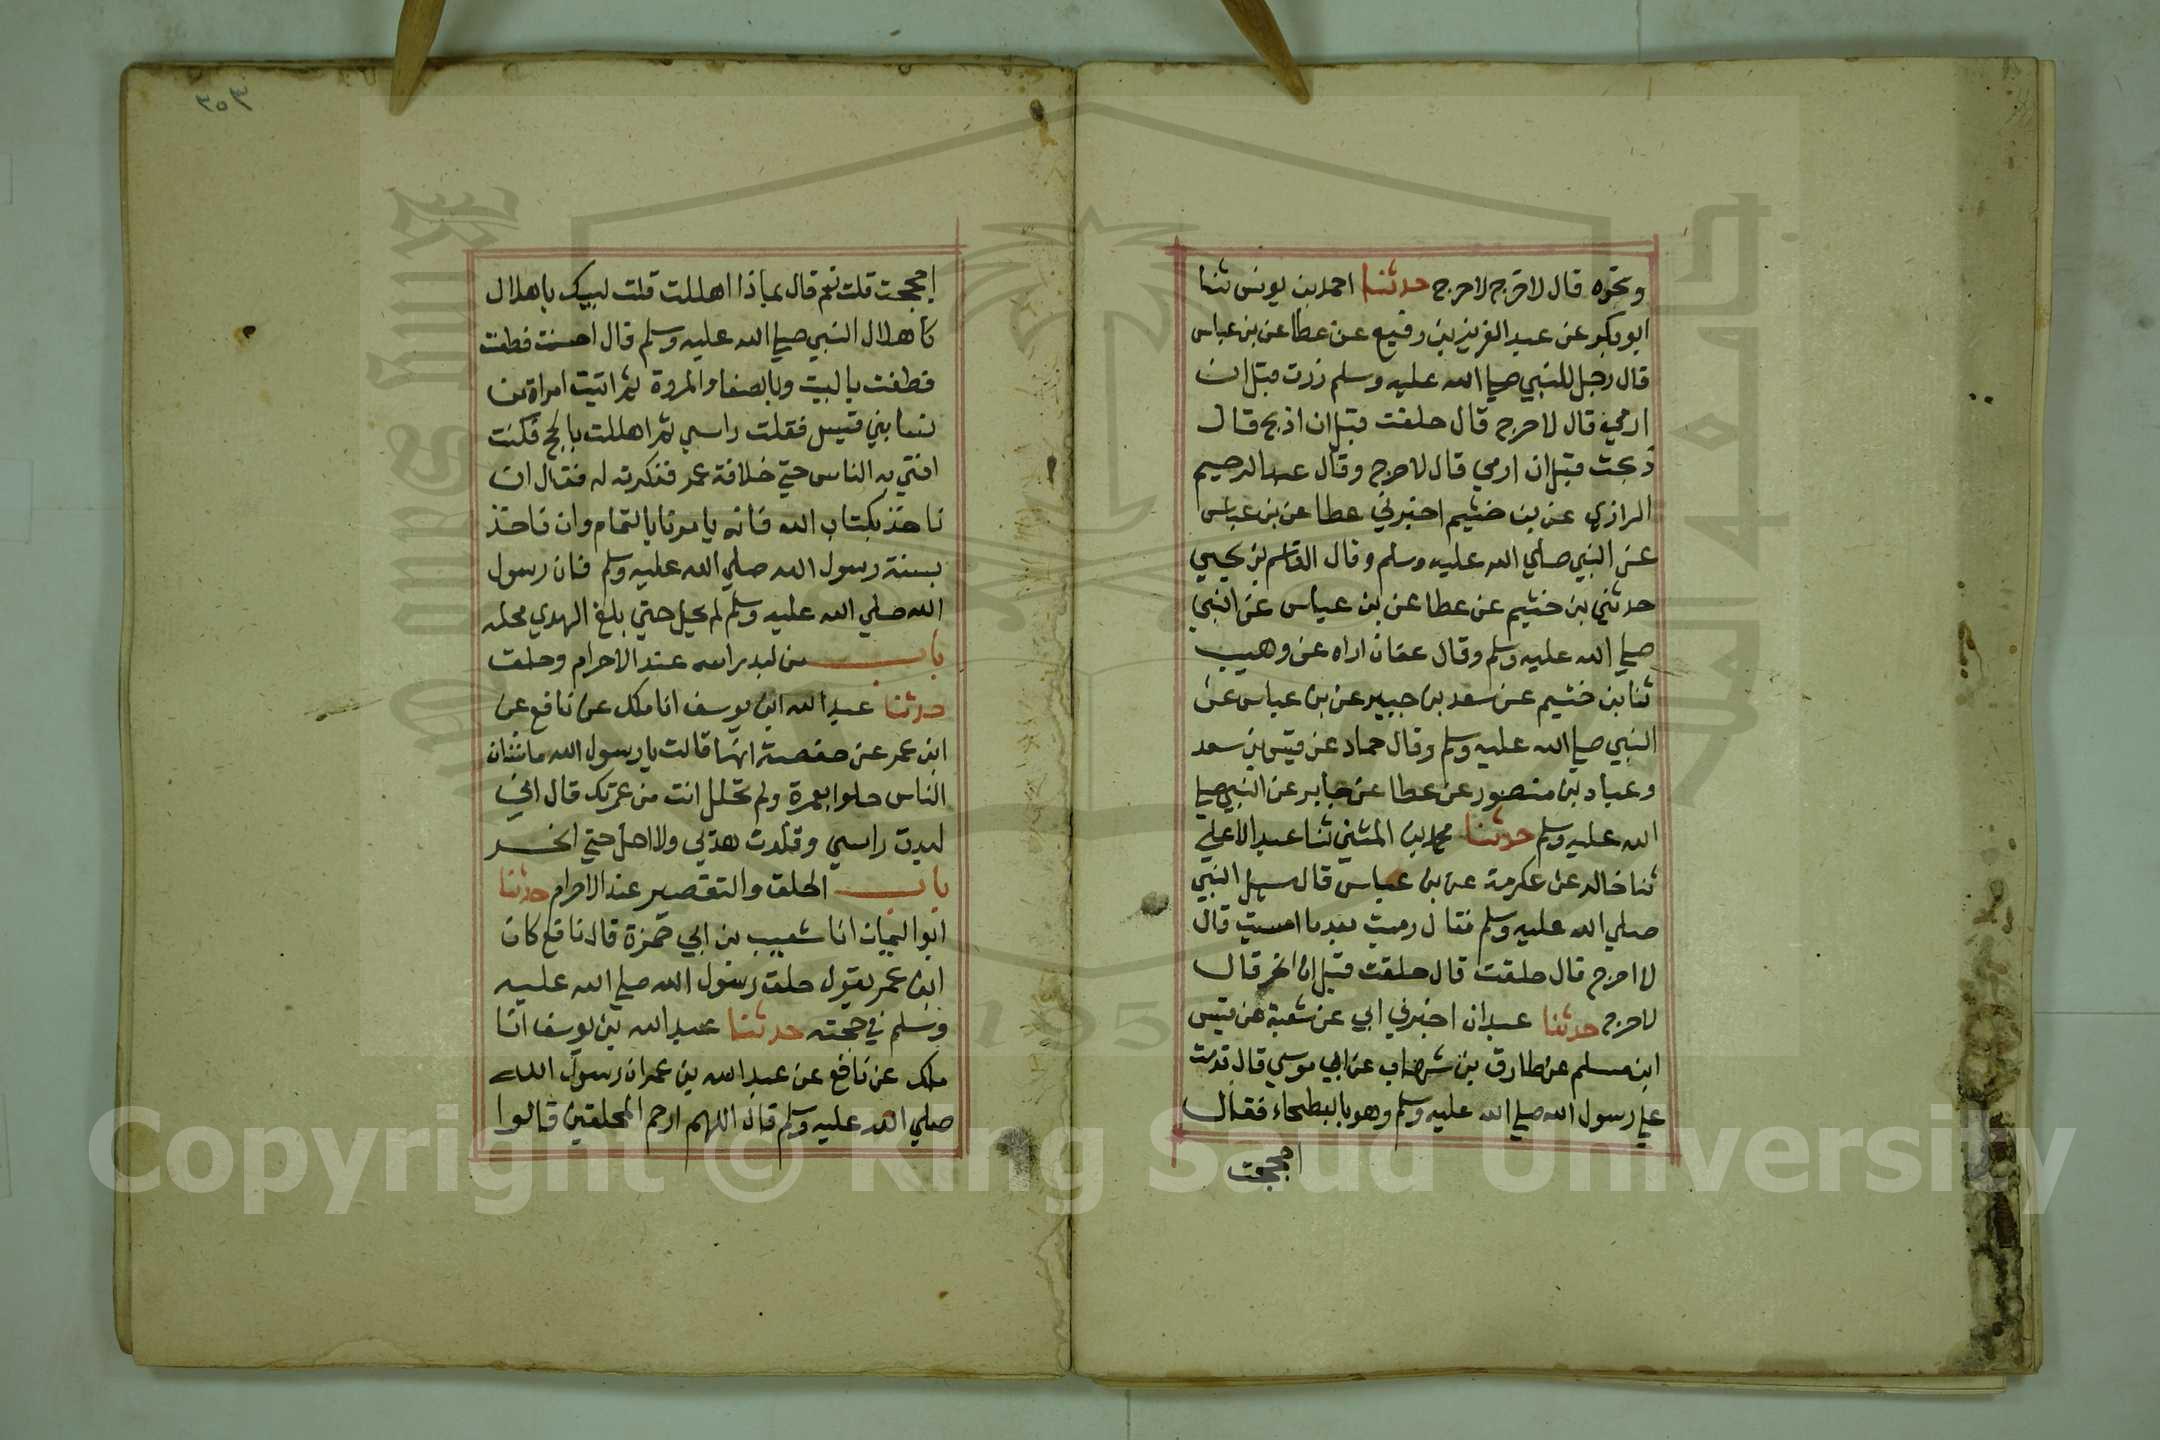 ونحوه قال لا حرج لا حرج حدثنا احمد بن يونس ثنا
ابو بكر عن عبد العزيز بن رفيع عن عطا عن بن عباس
قال رجل للنبي صلي الله عليه وسلم زرت قبل ان
ارمي قال لا حرج قال حلقت قبل ان اذبح قال
ذبحت قبل ان ارمي قال لا حرج وقال عبد الرحيم
الرازي عن بن خثيم اخبرني عطا عن بن عباس
عن النبي صلي الله عليه وسلم وقال القاسم بن يحيي
حدثني بن خثيم عن عطا عن بن عباس عن النبي
صلي الله عليه وسلم وقال عفان اراه عن وهيب
ثنا بن خثيم عن سعد بن جبير عن بن عباس عن
النبي صلي الله عليه وسلم وقال حماد عن قيس بن سعد
وعباد بن منصور عن عطا عن جابر عن النبي صلي
الله عليه وسلم حدثنا محمد بن المثني ثنا عبد الاعلي
ثنا خالد عن عكرمة عن بن عباس قال سيل النبي
صلي الله عليه وسلم فقال رميت بعد ما امسيت قال
لا احرج قال حلقت قال حلقت قبل ان انحر قال
لا حرج حدثنا عبدان اخبرني ابي عن شعبة عن قيس
ابن مسلم عن طارق بن شهاب عن ابي موسي قال قدمت
علي رسول الله صلي الله عليه وسلم وهو بالبطحاء فقال
احججت
٣٥٣
احججت قلت نعم قال بماذا اهللت قلت لبيك باهلال
كاهلال النبي صلي الله عليه وسلم قال احسنت فطفت
فطفت بالبيت وبالصفا والمروة ثم اتيت امراة من
نسا بني قيس ففلت راسي ثم اهللت بالحج فكنت
افتي به الناس حتي خلافة عمر فذكرته له فقال ان
ناخذ بكتاب الله فانه يامرنا بالتمام وان ناخذ
بسنة رسول الله صلي الله عليه وسلم فان رسول
الله صلي الله عليه وسلم لم يحل حتي بلغ الهدي محله
باب من لبد راسه عند الاحرام وحلق
حدثنا عبد الله ابن يوسف انا ملك عن نافع عن
ابن عمر عن حفصة انها قالت يا رسول الله ما شان
الناس حلوا بعمرة ولم تحلل انت من عمرتك قال اني
لبدت راسي وقلدت هديي ولا احل حتي انحر
باب الحلق والتقصير عند الاحرام حدثنا
ابو اليمان انا شعيب بن ابي حمزة قال نافع كان
ابن عمر يقول حلق رسول الله صلي الله عليه
وسلم في حجته حدثنا عبد الله بن يوسف انا
ملك عن نافع عن عبد الله بن عمر ان رسول الله
صلي الله عليه وسلم قال اللهم ارحم المحلقين قالوا
Copyright © King Saud University
1957